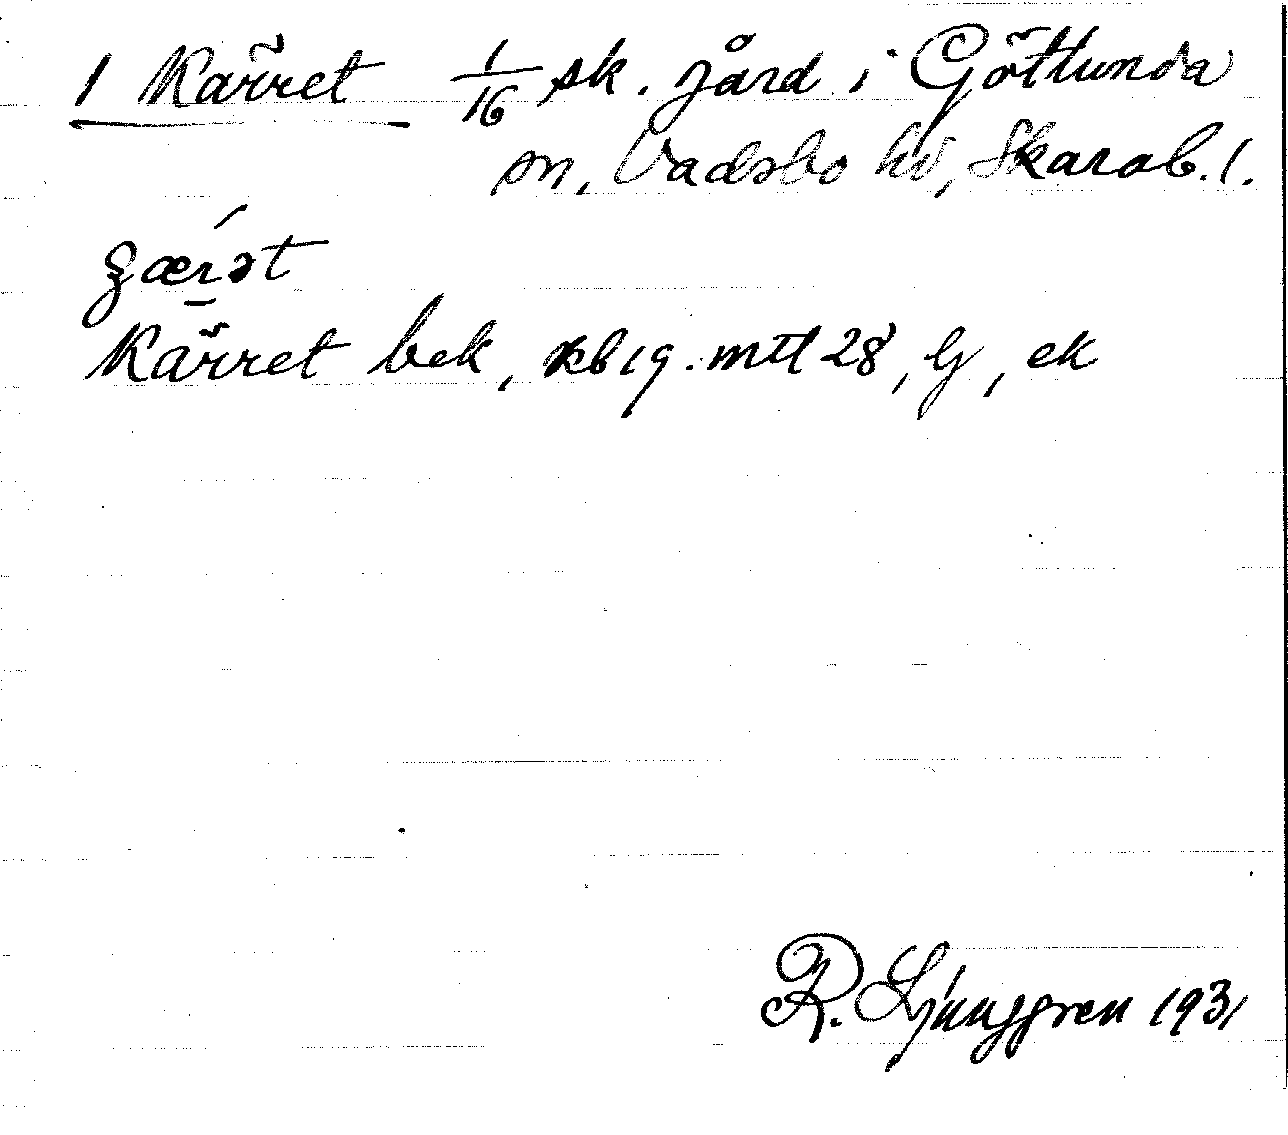 1 Kärret 1/16 sk. gård i Götlunda
sn, Vadsbo hd, Skarab. l.
Kärret bek, kb 19. mtl 28, lj, ek
R. Ljunggren 1931